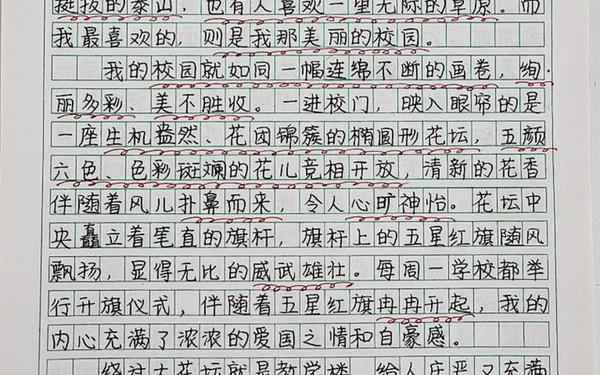 挺拔的泰山，也有人喜欢一望无际的草原。而
我最喜欢的，则是我那美丽的校园。
我的校园就如同一幅连绵不断的画卷，绚
丽多彩、美不胜收。一进校门，映入眼帘的是
一座生机盎然、花团锦簇的椭圆形花坛，五颜
六色、色彩斑斓的花儿竞相开放，清新的花香
伴随着风儿扑鼻而来，令人心旷神怡。花坛中
央矗立着笔直的旗杆，旗杆上的五星红旗随风
飘扬，显得无比的威武雄壮。每周一学校都举
行升旗仪式，伴随着五星红旗冉冉升起，我的
内心充满了浓浓的爱国之情和自豪感。
绕过大花坛就是教学楼，给人庄严又充满